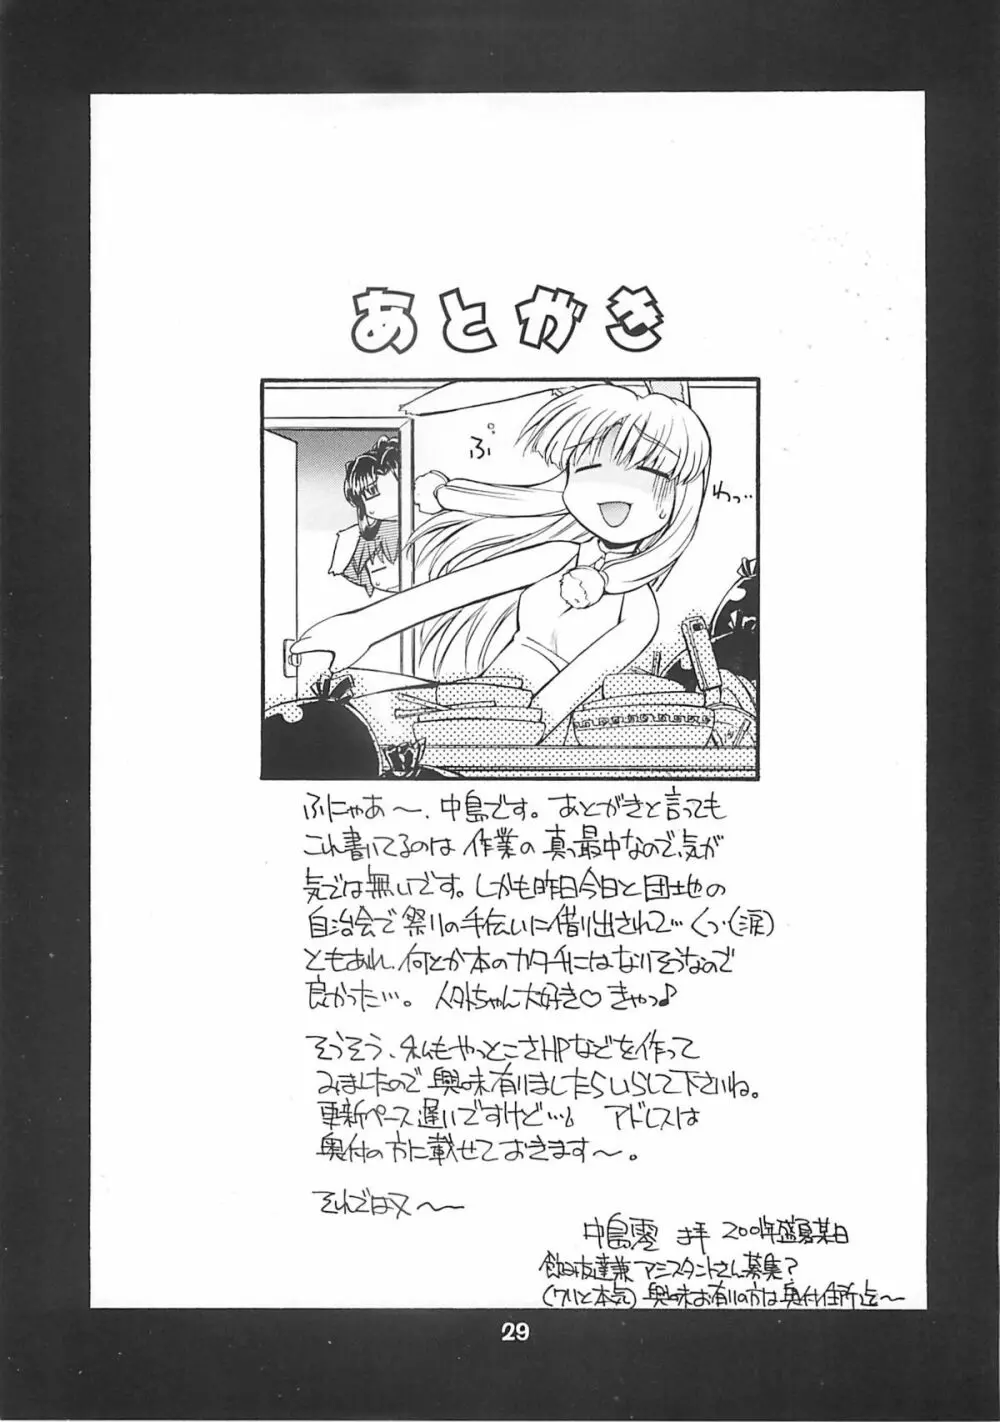 あとがき
ぷ。
わっ…
ふにゃあ〜、中島です。あとがきと言っても
これ書いてるのは作業の真っ最中なので、気が
気では無いです。しかも昨日今日と団地の
自治会で祭りの手伝いに借り出されて…くっ…(涙)
ともあれ、何とか本のカタチにはなりそうなので
良かった…。ちゃん大好き♡きゃっ♪
そうそう、私もやっとこさHPなどを作って
みましたので興味有りましたらいらして下さいね。
更新ペース遅いですけど…。アドレスは
奥付の方に載せておきます〜。
それでは又〜
中島零 拝 2001年盛夏某日
飲み友達兼アシスタントさん募集?
(ワリと本気)興味お有りの方は奥付住所迄〜
29